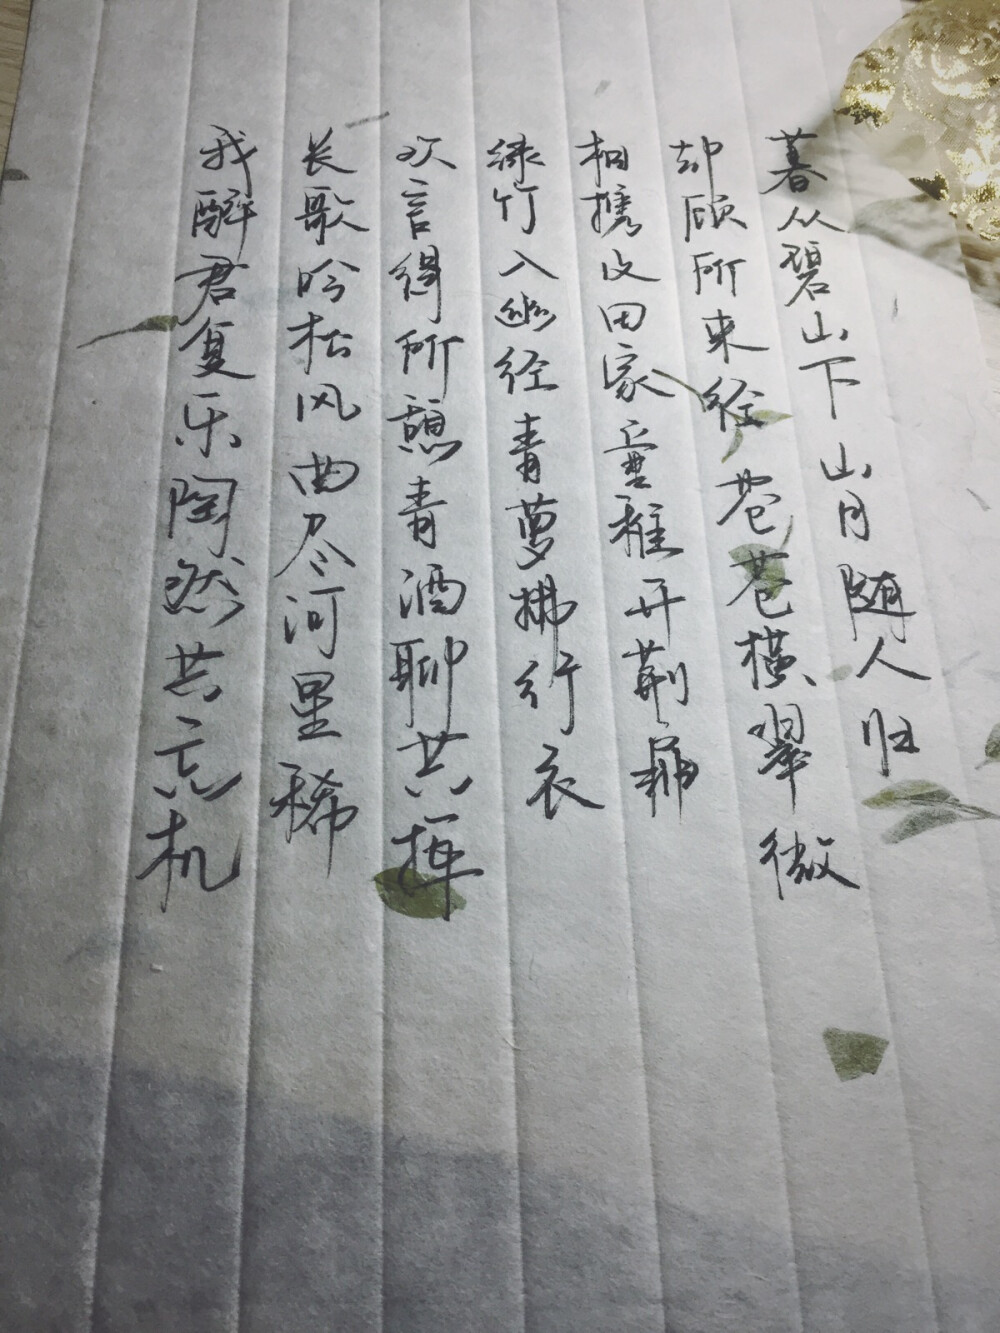 暮从碧山下山月随人归
却顾所来径苍苍横翠微
相携及田家童稚开荆扉
绿竹入幽径青萝拂行衣
欢言得所憩青酒聊共挥
长歌吟松风曲尽河星稀
我醉君复乐陶然共忘机